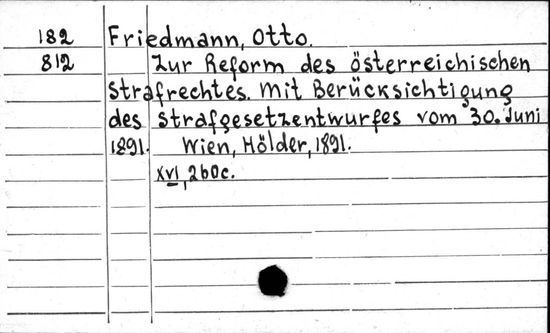 182 Friedmann, Otto.
812 Zur Reform des österreichischen
Strafrechtes. Mit Berücksichtigung
des Strafgesetzentwurfes vom 30. Juni
1891. Wien, Hölder, 1891.
XVI, 260c.